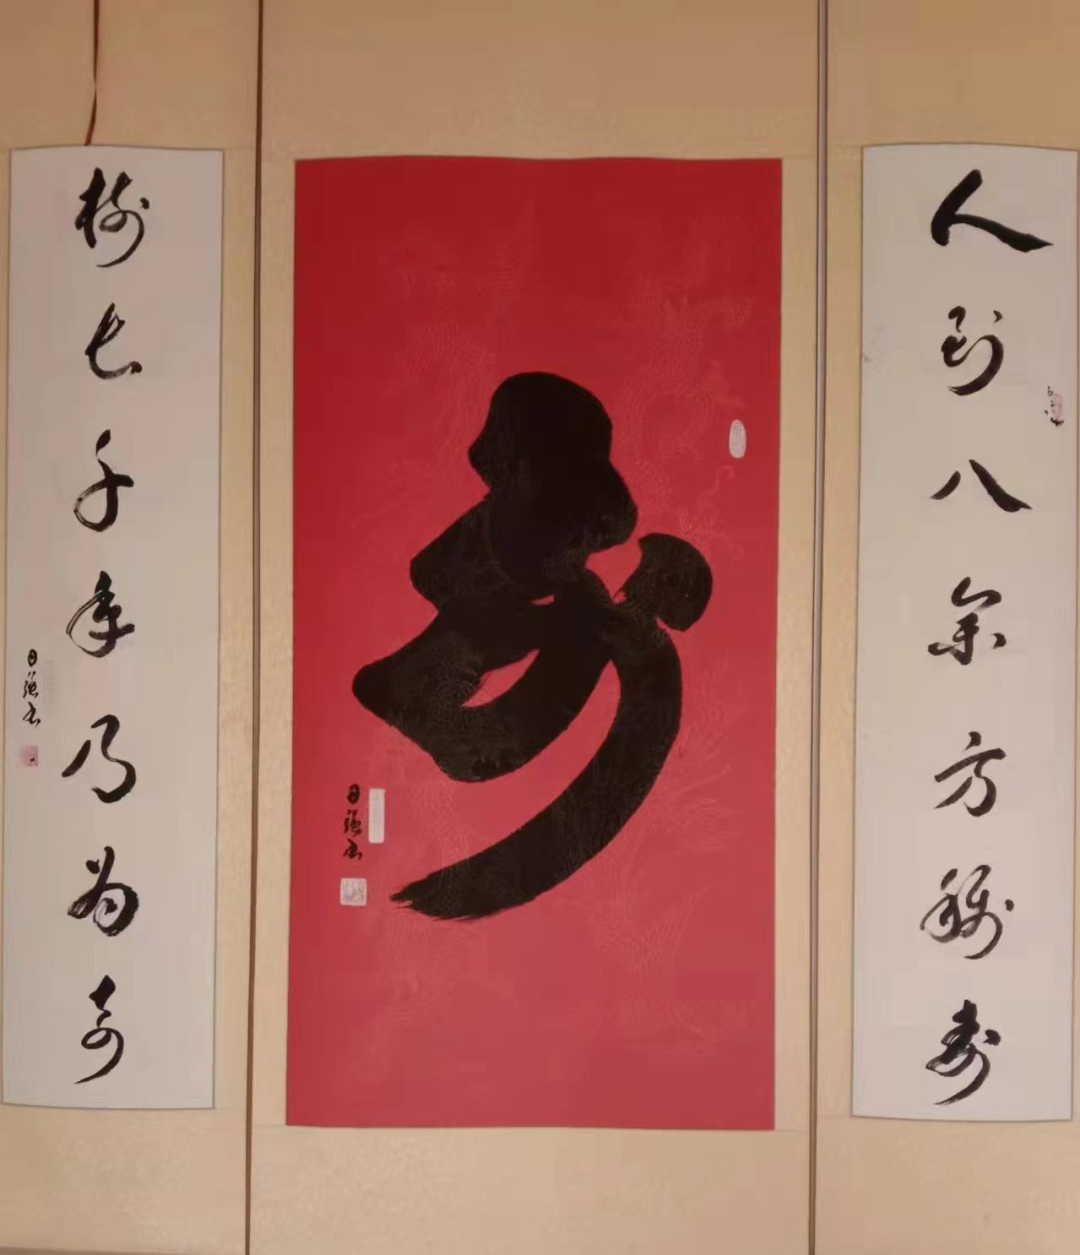 人到八余方称寿
寿
日强书
树长千年乃为奇
日强书